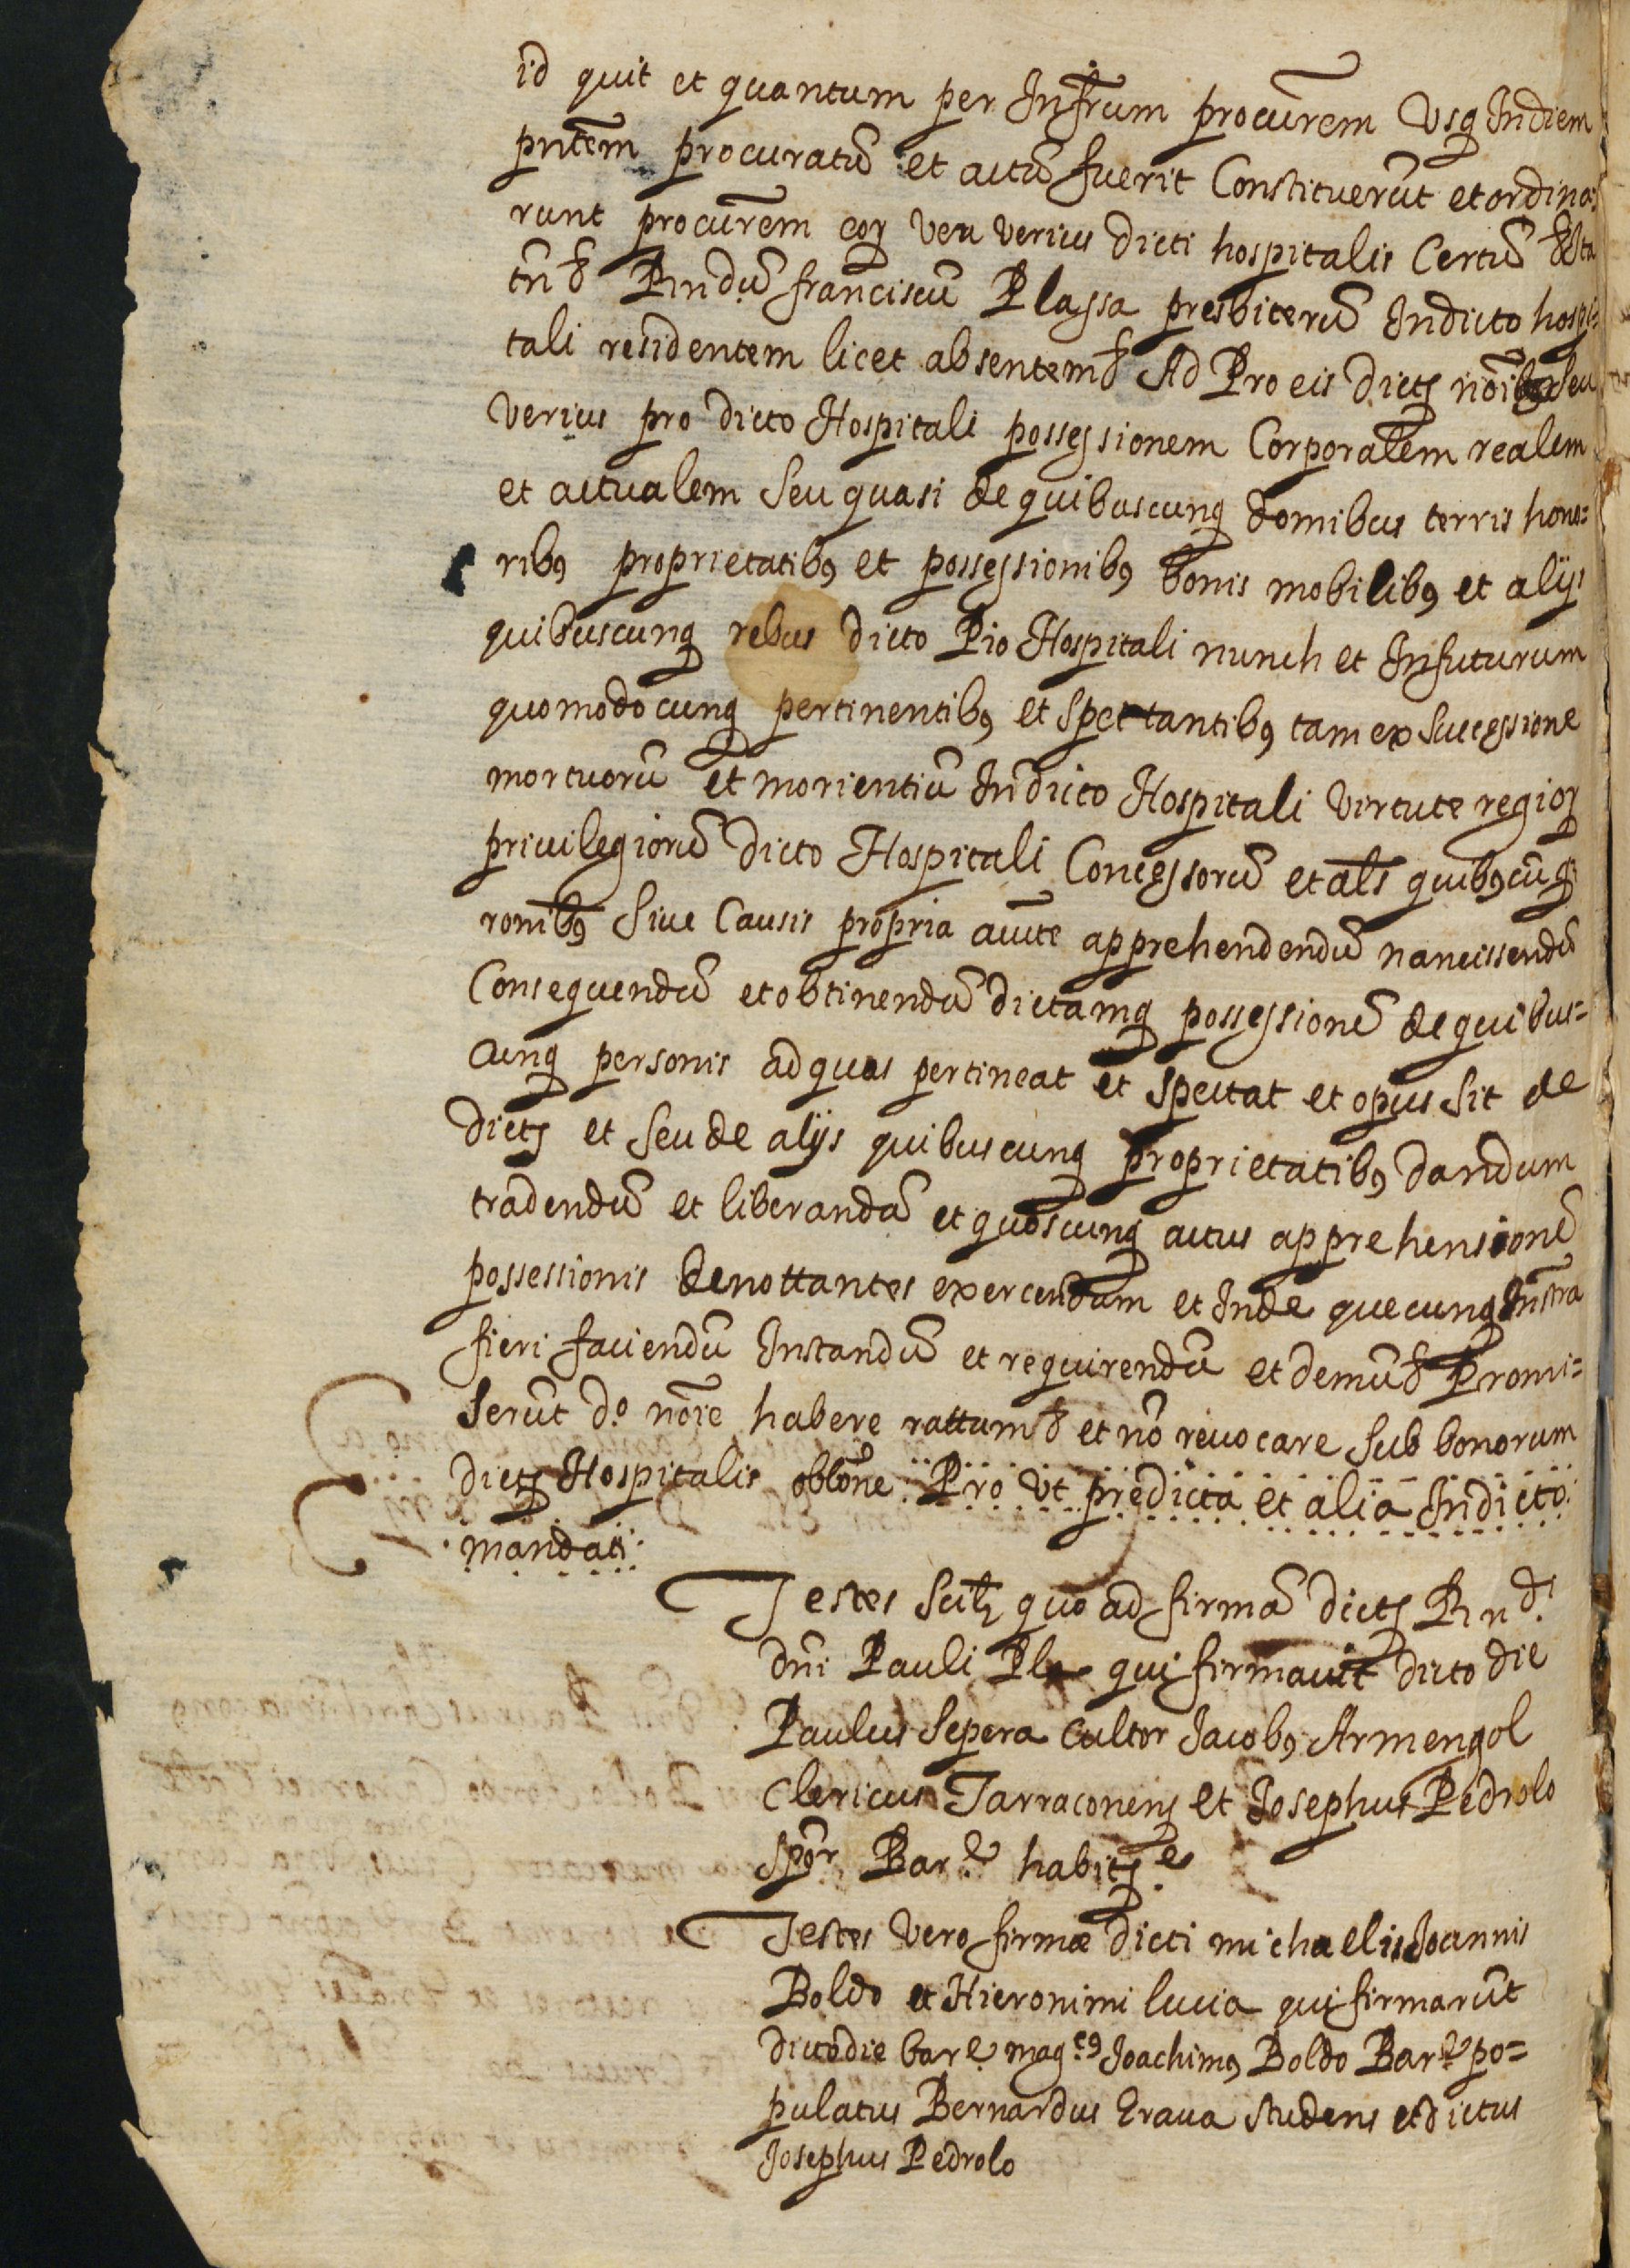 id quit et quantum per Infrũm procurẽm Usq Indiem
pntẽm procuratũ et actũ fuerit Constituerũt et ordina=
runt procurẽm eoꝝ seu verius dicti hospitalis Certũ &
Rndũ franciscũ Plassa presbiterũ Indicto hospi=
tali residentem licet absentem & Ad Pro eis dictꝭ noĩbꝰ seu
verius pro dicto Hospitali possessionem Corporalem realem
et actualem Seu quasi de quibuscunq domibus terris hono=
ribꝰ proprietatibꝰ et possessionibꝰ bonis mobilibꝰ et alijs
quibuscunq rebus dicto Pio Hospitali nunch et Infuturum
quomodocunq pertinentibꝰ et Spettantibꝰ tam ex Sucessione
mortuorũ et morientiũ Indicto Hospitali virtute regioꝝ
privilegiorũ dicto Hospitali Concessorũ et als̃ quibꝰcũq
ronibꝰ Sive Causis propria aucte apprehendendũ nancissendũ
Consequendũ et obtinendũ dictamq possessionẽ de quibus=
cunq personis ad quas pertineat et Spectat et opus sit de
dictꝭ et Seu de alijs quibuscunq proprietatibꝰ dandum
tradendũ et liberandũ et quoscunq actus apprehensionẽ
possessionis denottantes exercendum et Inde quecunq Instra
fieri faciendũ Instandũ et requirendũ et demũ & Promi=
serũt dº noĩe habere rattum & et nõ revocare Sub bonorum
dictꝭ Hospitalis oblõne Pro Ut predicta et alia Indicto
mandati
Testes Scilꝫ quo ad firmã dictꝭ Rndi
dñi Pauli Pla qui firmavit dicto die
Paulus Sepera Cultor Jacobꝰ Armengol
Clericus Tarraconenꝭ et Josephus Pedrolo
Spõr Bar.e habitꝭ
Testes Vero firmæ dicti michaelis Joannis
Boldo et Hieronimi lucia qui firmarũt
dicto die bar.e mag.cꝰ Joachimꝰ Boldo Bar.e po=
pulatus Bernardus Erava Studens et dictus
Josephus Pedrolo